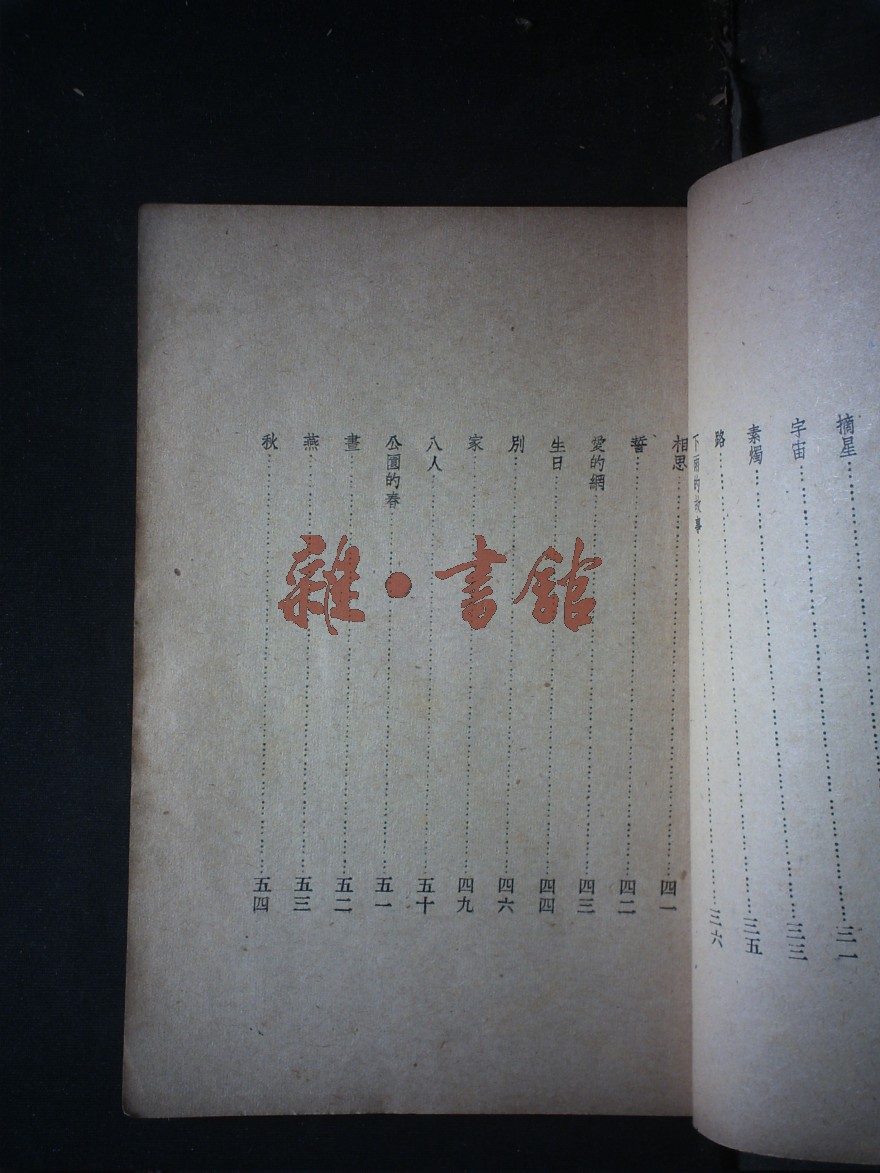 摘星……三一
宇宙……三三
素燭……三五
路……三六
下雨的故事……
相思……四一
誓……四二
愛的網……四三
生日……四四
別……四六
家……四九
八人……五十
公園的春……五一
晝……五二
燕……五三
秋……五四
雜·書館